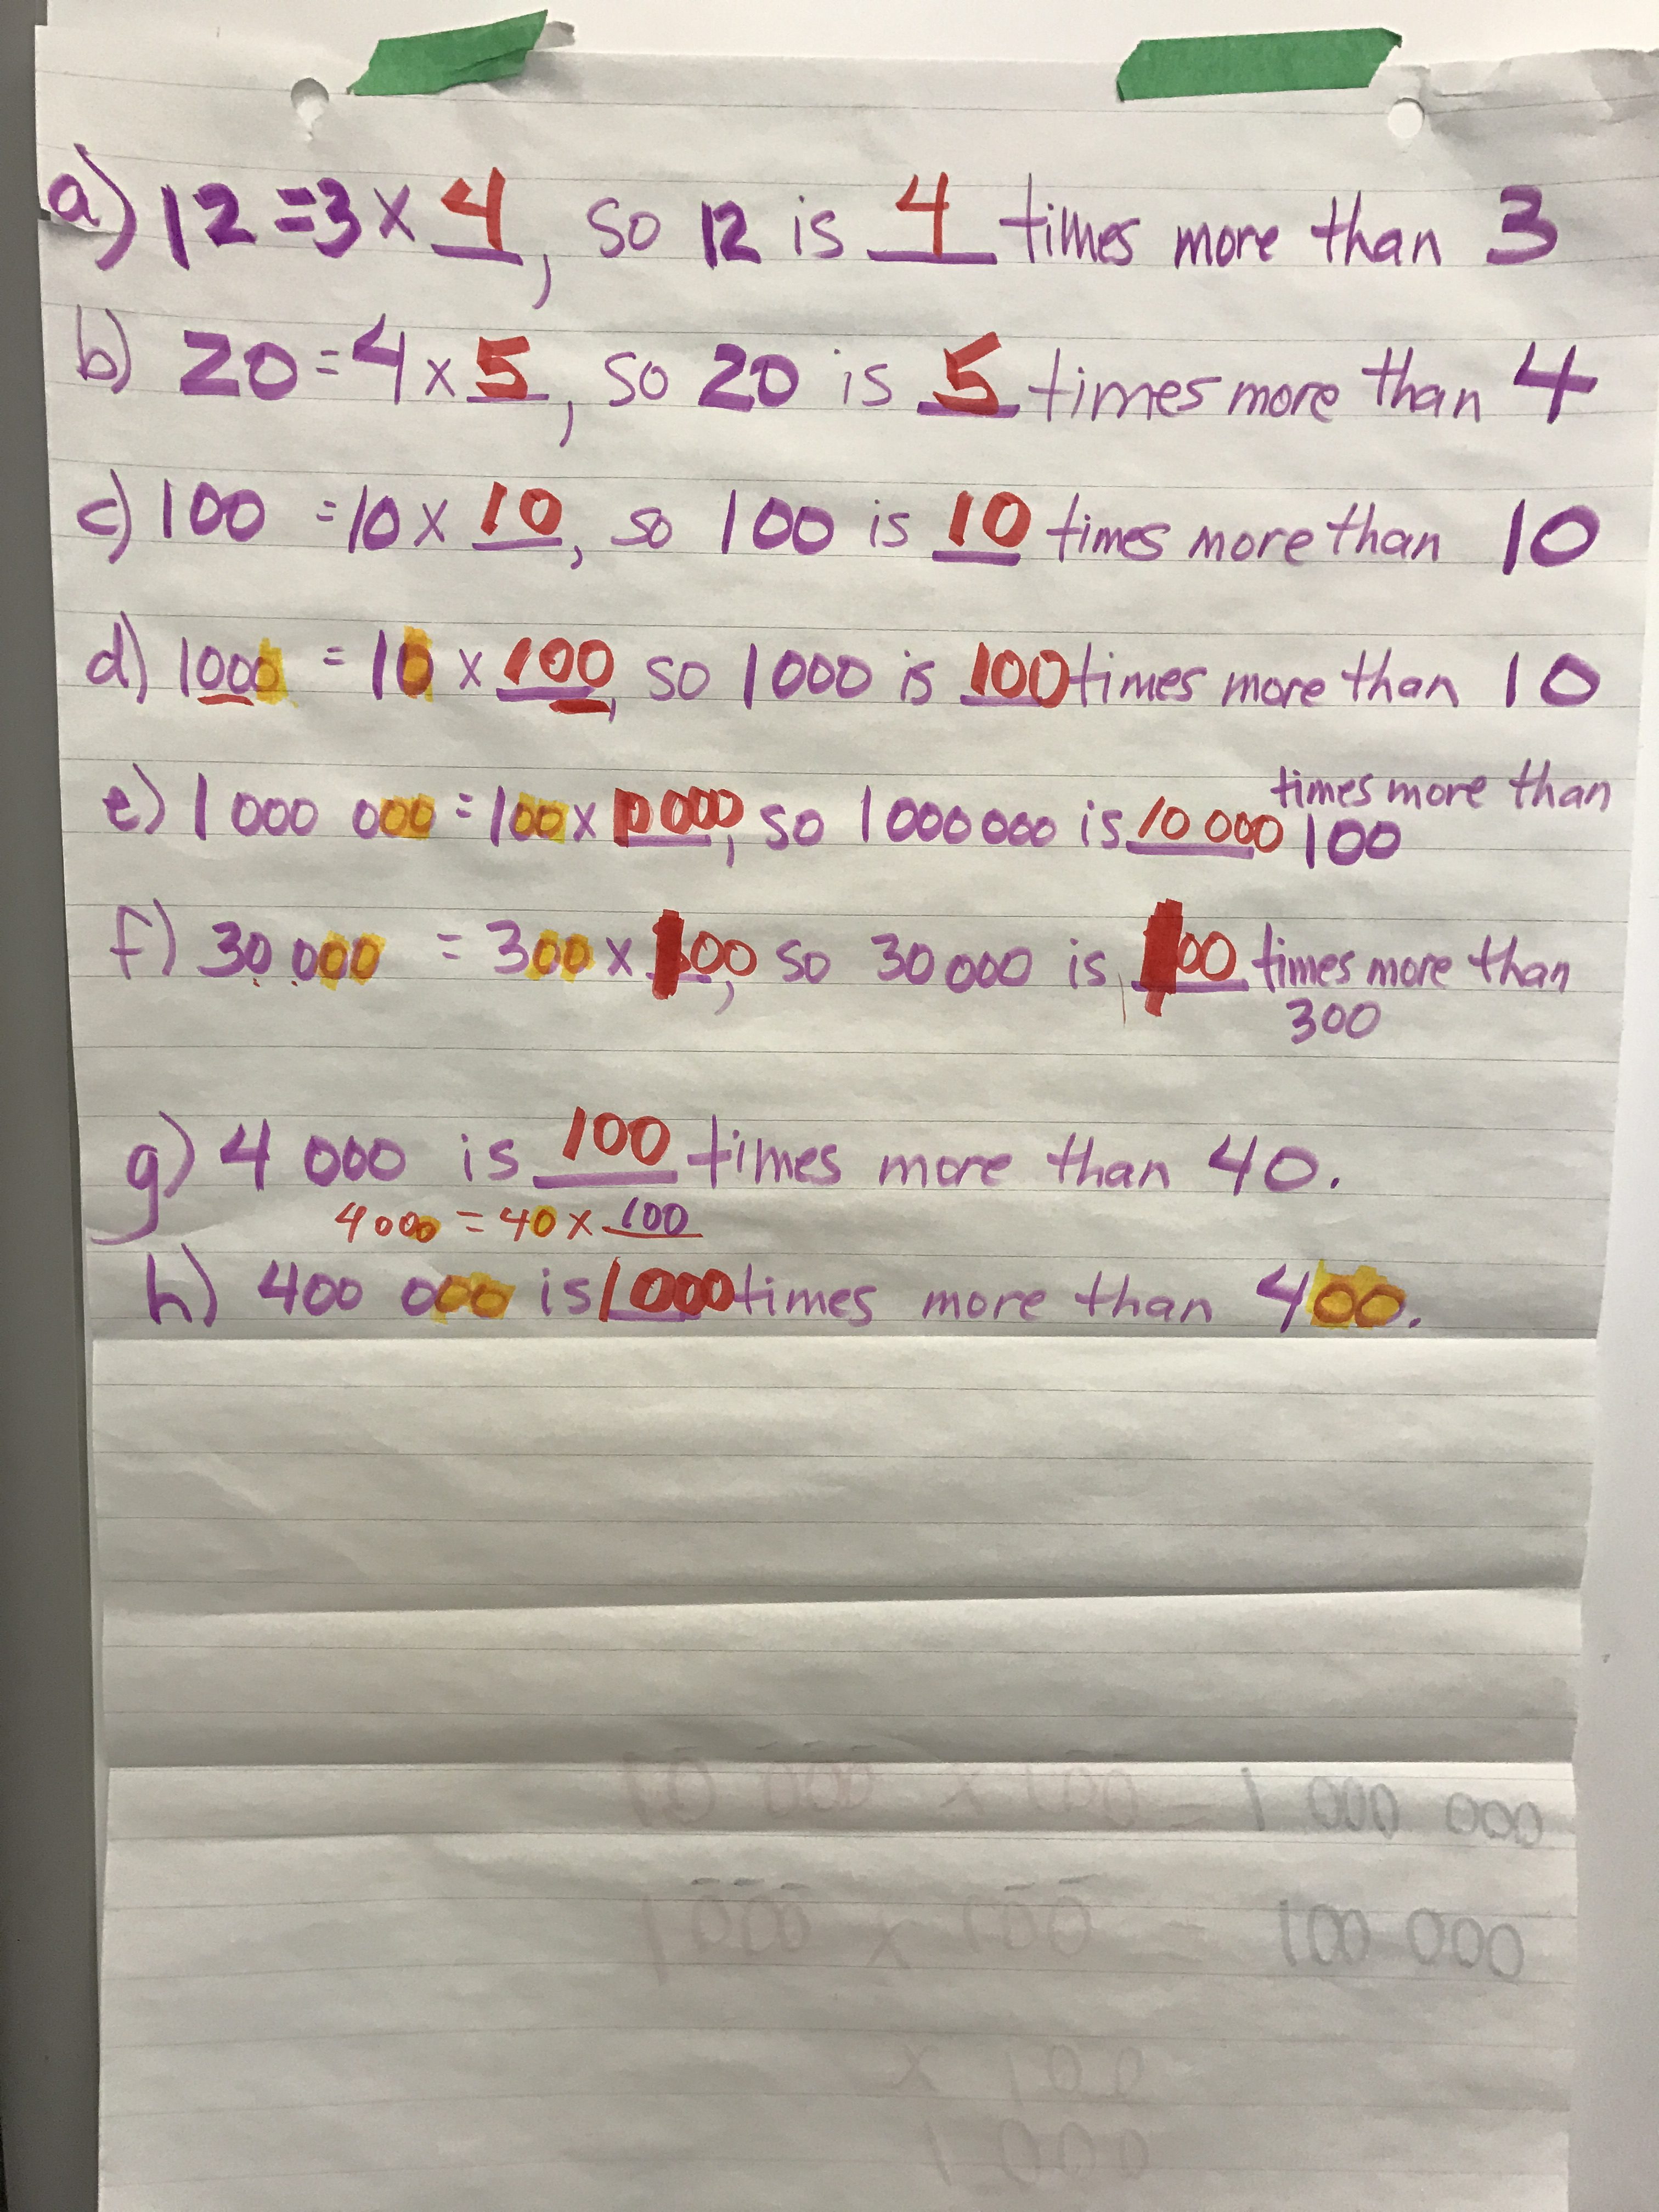 a) 12 = 3 x 4, so 12 is 4 times more than 3
b) 20 = 4 x 5, so 20 is 5 times more than 4
c) 100 = 10 x 10, so 100 is 10 times more than 10
d) 1000 = 10 x 100, so 1000 is 100 times more than 10
e) 1 000 000 = 100 x 10 000, so 1 000 000 is 10 000 times more than
100
f) 30 000 = 300 x 100, so 30 000 is 100 times more than
300
g) 4 000 is 100 times more than 40.
4000 = 40 x 100
h) 400 000 is 1 000 times more than 400.